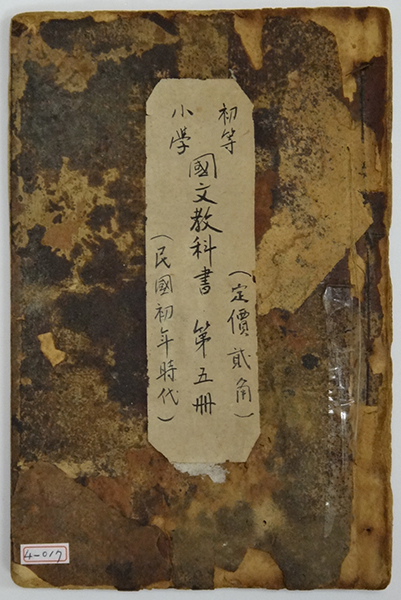 初等
小學
國文教科書 第五冊
（定價貳角）
（民國初年時代）
4-017